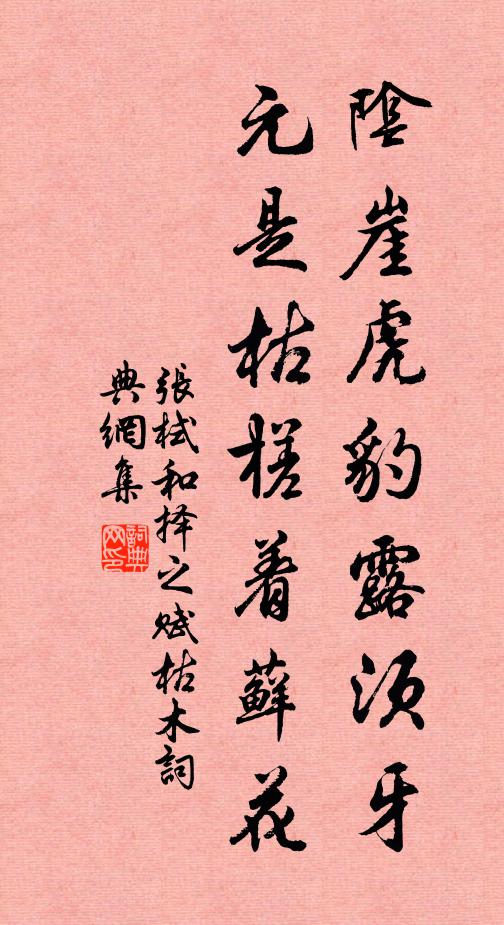 陰崖虎豹露须牙
元是枯槎着蘚花
張栻和择之赋枯木詞
典網集
詞典
网印